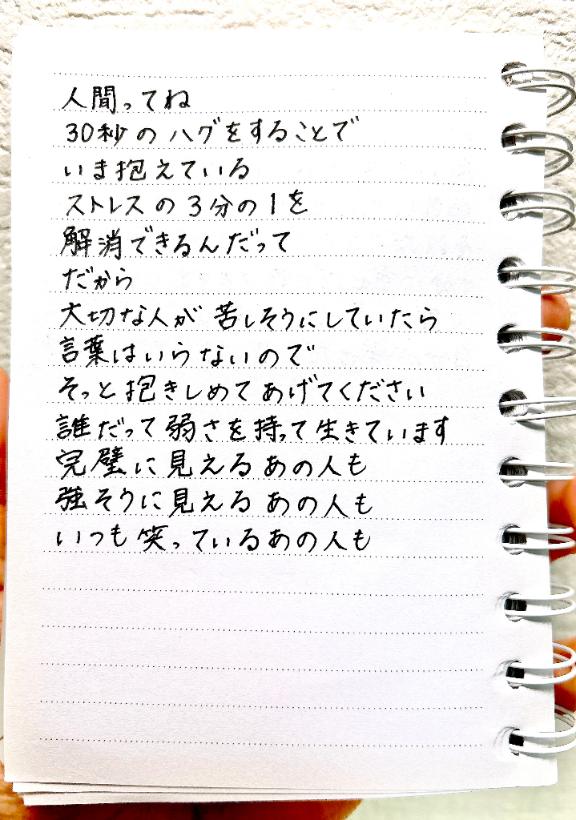 人間ってね
30秒のハグをすることで
いま抱えている
ストレスの3分の1を
解消できるんだって
だから
大切な人が苦しそうにしていたら
言葉はいらないので
そっと抱きしめてあげてください
誰だって弱さを持って生きています
完璧に見えるあの人も
強そうに見えるあの人も
いつも笑っているあの人も